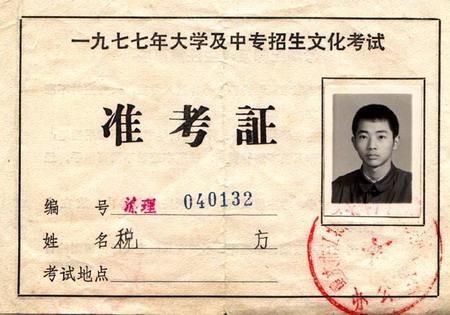 一九七七年大学及中专招生文化考试
准考証
编号 理 040132
姓名 税方
考试地点
办公